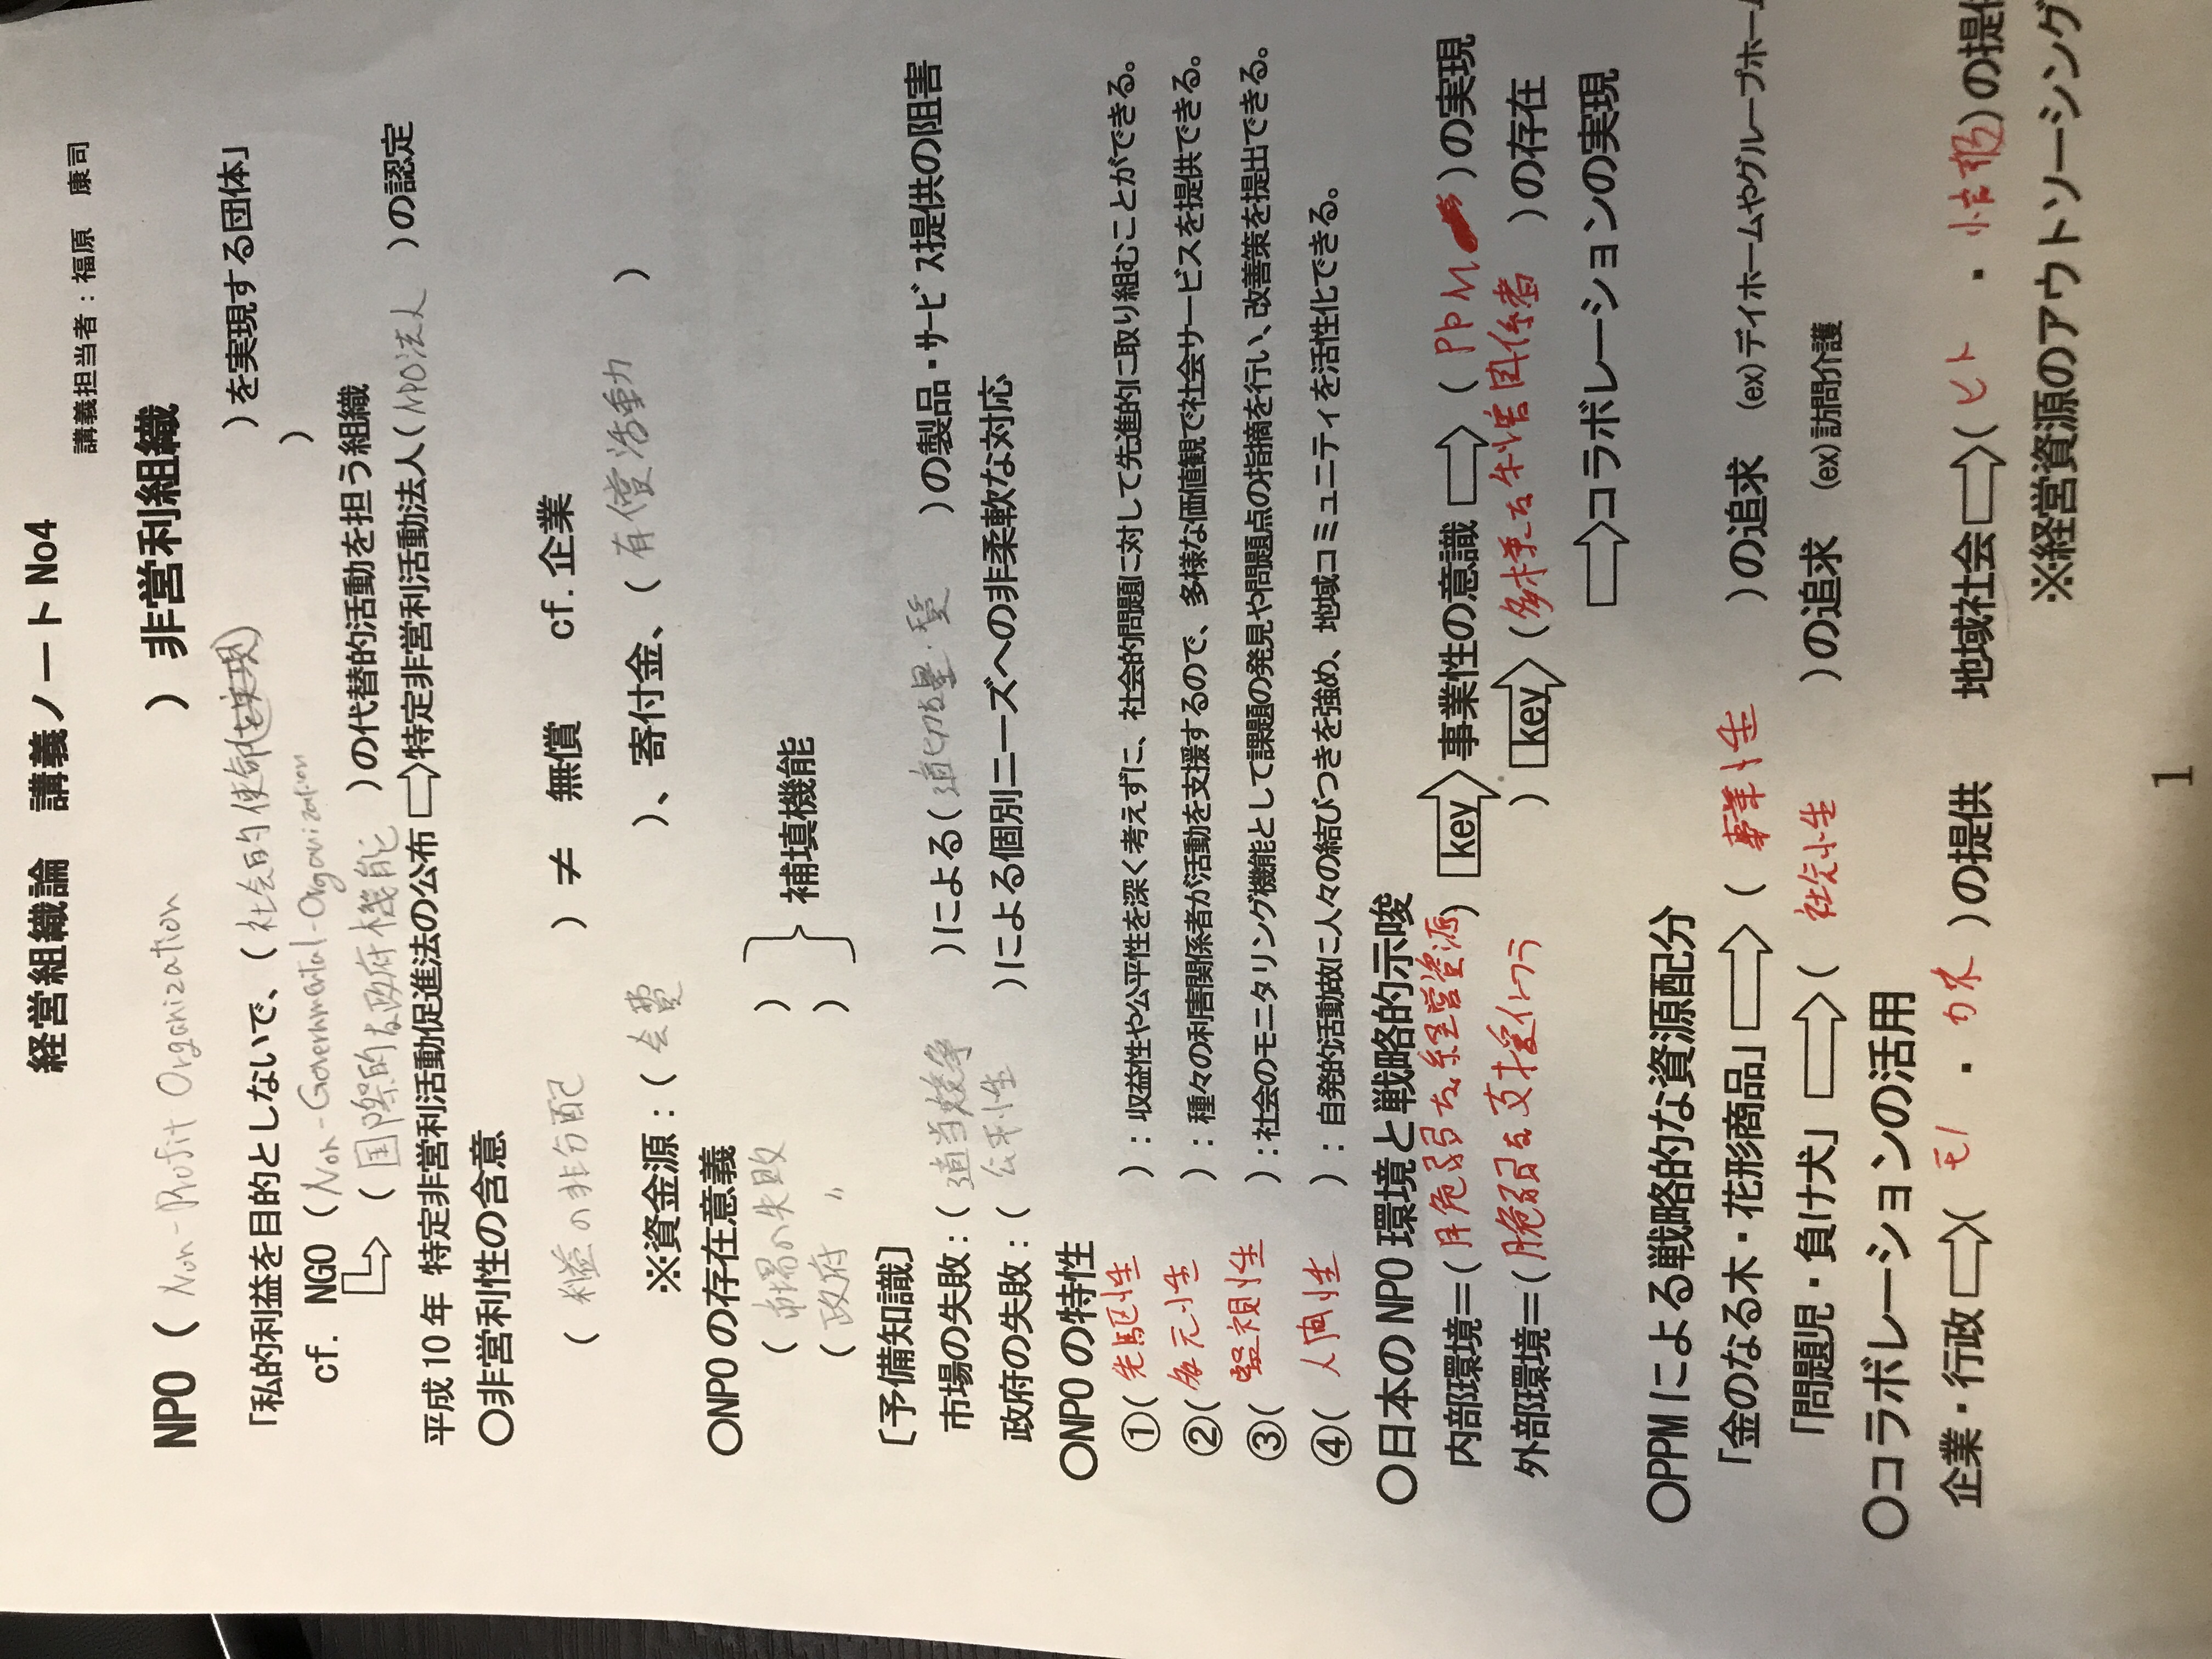 経営組織論　講義ノート No4
講義担当者：福原　康司
NPO ( Non-Profit Organization ) 非営利組織
「私的利益を目的としないで、( 社会的使命(を実現) )を実現する団体」
cf. NGO (Non-Governmental-Organization )
( 国際的な政府機能 )の代替的活動を担う組織
平成10年 特定非営利活動促進法の公布 ⇨ 特定非営利活動法人( NPO法人 )の認定
○非営利性の含意
( 利益の非分配 ) ≠ 無償 cf. 企業
※資金源：( 会費 )、寄付金、( 有償活動 )
○NPOの存在意義
( 市場の失敗 )
( 政府 〃 ) 補填機能
〔予備知識〕
市場の失敗：( 過当競争 )による( 適切な量・質 )の製品・サービス提供の阻害
政府の失敗：( 公平性 )による個別ニーズへの非柔軟な対応
○NPOの特性
①( 先駆性 )：収益性や公平性を深く考えずに、社会的問題に対して先進的に取り組むことができる。
②( 多元性 )：種々の利害関係者が活動を支援するので、多様な価値観で社会サービスを提供できる。
③( 監視性 )：社会のモニタリング機能として課題の発見や問題点の指摘を行い、改善策を提出できる。
④( 人間性 )：自発的活動故に人々の結びつきを強め、地域コミュニティを活性化できる。
○日本のNPO環境と戦略的示唆
内部環境＝( 脆弱な経営資源 ) key 事業性の意識 ⇨ ( PPM )の実現
外部環境＝( 脆弱な支援インフラ ) key ( 多様な利害関係者 )の存在
⇨コラボレーションの実現
○PPMによる戦略的な資源配分
「金のなる木・花形商品」⇨ ( 事業性 )の追求 (ex)デイホームやグループホーム
「問題児・負け犬」⇨ ( 社会性 )の追求 (ex)訪問介護
○コラボレーションの活用
企業・行政⇨( モノ ・ カネ )の提供 地域社会⇨( ヒト ・ 情報 )の提供
※経営資源のアウトソーシング
1